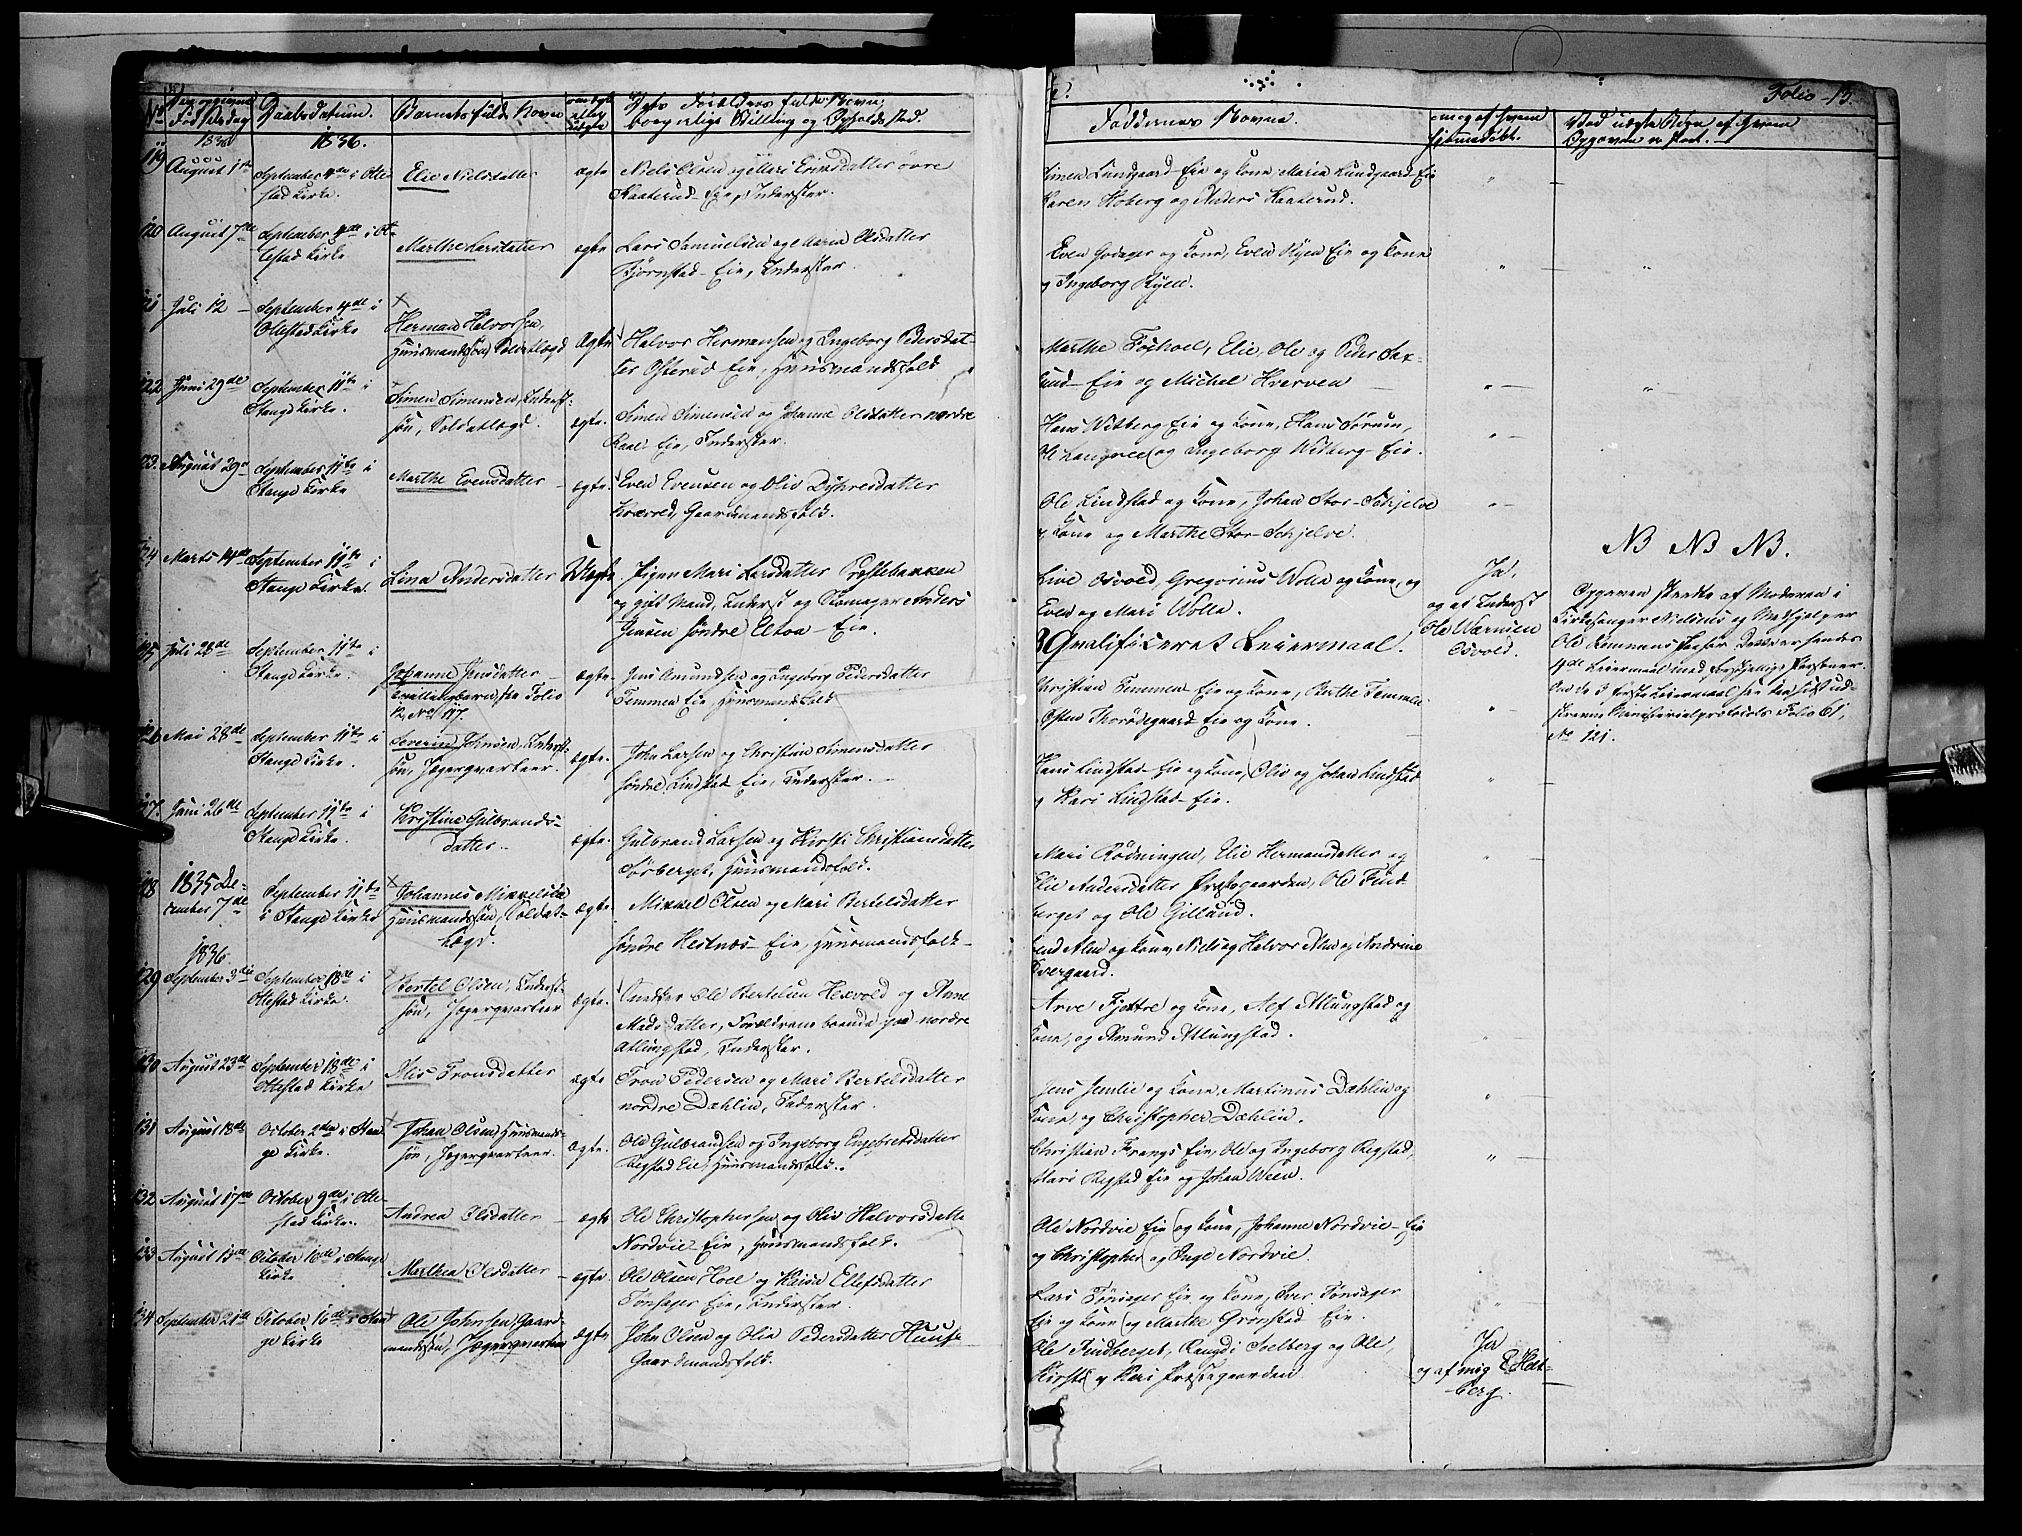 Folio 13.
No
Fødselsdag
Daabsdatum.
Barnets fulde Navn
ægte eller uægte
Forældres fulde Navn,
borgerlige Stilling og Opholds Sted.
Faddernes Navne.
om og af hvem
hjemmedøbt.
Ved uægte Børn af hvem
Opgaven er skeet.
1836
1836.
119 August 1ste September 4de i Otte-
stad Kirke.
Elie Nielsdatter
ægte
Niels Olsen og Mari Erichsdatter øvre
Kaaterud Eie, Inderster.
Simen Lundgaard Eie og Kone, Maria Lundgaard Eie
Karen Hoberg og Anders Kaaterud.
120 August 7de September 4de i Ot-
testad Kirke
Marthe Larsdatter
ægte
Lars Samuelsen og Maria Olsdatter
Bjørnstad Eie, Inderster.
Even Godager og Kone, Even Ryen Eie og Kone
og Ingeborg Ryen.
121 Juli 12 September 4de i
Ottestad Kirke
Herman Halvorsen,
Huusmandssøn, Soldatlægd
Ægte
Halvor Hermansen og Ingeborg Pedersdat-
ter Osterud Eie, Huusmandsfolk
Marthe Foshoel, Elie, Ole og Peder Sax-
lund Eie og Michel Hverven
122 Juni 29de September 11te i
Stange Kirke.
Simen Simensen, Inderst-
søn, Soldatlægd.
ægte.
Simen Simensen og Johanne Olsdatter nordre
Kaal Eie, Inderster.
Hans Witberg Eie og Kone, Hans Sørum,
og Ingeborg Witberg Eie.
123. August 29 September 11te i
Stange Kirke
Marthe Evensdatter
ægte.
Even Evensen og Oliv Dyhresdatter
Gaardmandsfolk.
Ole Lindstad og Kone, Johan Stor-Schjelve
og Kone og Marthe Stor-Schjelve.
124 Marts 14de September 11te i
Stange Kirke.
Lina Andersdatter
Uægte
Pigen Mari Larsdatter Præstebakken
og gift Mand, Inderst og Skomager Anders
Jensen søndre Eltoa Eie.
Live Osvold, Gregorius Wolla og Kone, og
Even og Mari Wolla.
3 Qualificeret Leiermaal.
Ja,
og af Inderst
Ole Warnsen
Osvold.
NB NB NB.
Opgaven skeedte af Moderen i
Kirkesanger Nielsens og Medhjelper
4de Leiermaal med forskjellige Personer.
Om de 3 første Leiermaal see den sidst ud-
skrevne Ministerialprotocols Folio 61,
No 121.
125 Juli 28de September 11te i
Stange Kirke.
Johanne Jensdatter
Tvillingbarn, see Folio
12, No 117.
ægte.
Jens Amundsen og Ingeborg Pedersdatter
Temmen Eie, Huusmandsfolk
Christian Temmen Eie og Kone, Berthe Temmen
Osten Thorødegaard Eie og Kone.
126 Mai 28de September 11te i
Stange Kirke.
Severin Johnsen, Inderst-
søn, Jægerqvarteer.
ægte.
John Larsen og Christian Simensdatter
søndre Lindstad Eie, Inderster.
Hans Lindstad Eie og Kone, Oliv og Johan Lindstad
og Kari Lindstad Eie.
127. Juni 26de September 11te i
Stange Kirke.
Kristine Gulbrands-
datter.
ægte.
Gulbrand Larsen og Kirsti Christiansdatter
Sørberget, Huusmandsfolk.
Mari Rødningen, Elie Hermansdatter og
Elie Andersdatter Præstegaarden, Ole Find-
berget og Ole Gillund.
128 1835 De-
cember 7de
September 11te
i Stange Kirke
Johannes Mikkelsen
Huusmandssøn, Soldat-
lægd.
ægte
Mikkel Olsen og Mari Bertelsdatter
søndre Hestnæs Eie, Huusmandsfolk
Alm og Kone, Niels og Halvor Alm og Andrine
1836.
129 September 3die September 18de i
Ottestad Kirke.
Bertel Olsen, Inderst-
søn, Jægerqvarteer
ægte.
Ole Bertelsen Hexvold og Anne
Madsdatter, Forældrene boende paa nordre
Atlungstad, Inderster.
Arve Fjettre og Kone, Alf Atlungstad og
Kone, og Amund Atlungstad.
130 August 23de September 18de i
Ottestad Kirke
Alis Tronsdatter
ægte
Tron Pedersen og Mari Bertelsdatter
nordre Dæhlin, Inderster.
Jens Jemlie og Kone, Martinus Dæhlin og
Kone, og Christopher Dæhlin.
131 August 18de October 2den i Stan-
ge Kirke.
Johan Olsen, Huusmands-
søn, Jægerqvarteer.
ægte.
Ole Gulbrandsen og Ingeborg Engebretsdatter
Regstad Eie, Huusmandsfolk.
Christian Frangs Eie, Ole og Ingeborg Regstad,
Mari Regstad Eie og Johan Ween.
132 August 17de October 9de i Otte-
stad Kirke.
Andrea Olsdatter
ægte
Ole Christophersen og Oliv Halvorsdatter
Nordvie Eie, Huusmandsfolk.
Ole Nordvie Eie og Kone, Johanne Nordvie Eie
og Christopher og Inge Nordvie.
133 August 13de October 16de i Stange
Kirke
Marthea Olsdatter
ægte
Ole Olsen Hoel og Karen Ellefsdatter
Tønsager Eie, Inderster.
Lars Tønsager Eie og Kone, Iver Tønsager
Eie og Kone og Marthe Grønstad Eie.
134 September 21de October 16de i Stan-
ge Kirke
Ole Johnsen, Gaard-
mandssøn, Jægerqvarteer
ægte
John Olsen og Olia Pedersdatter Huuse
Gaardmandsfolk.
Ole Findberget, Rangdi Solberg og Ole,
Kirsti og Kari Præstegaarden.
Ja
og af mig E. Holt-
berg.